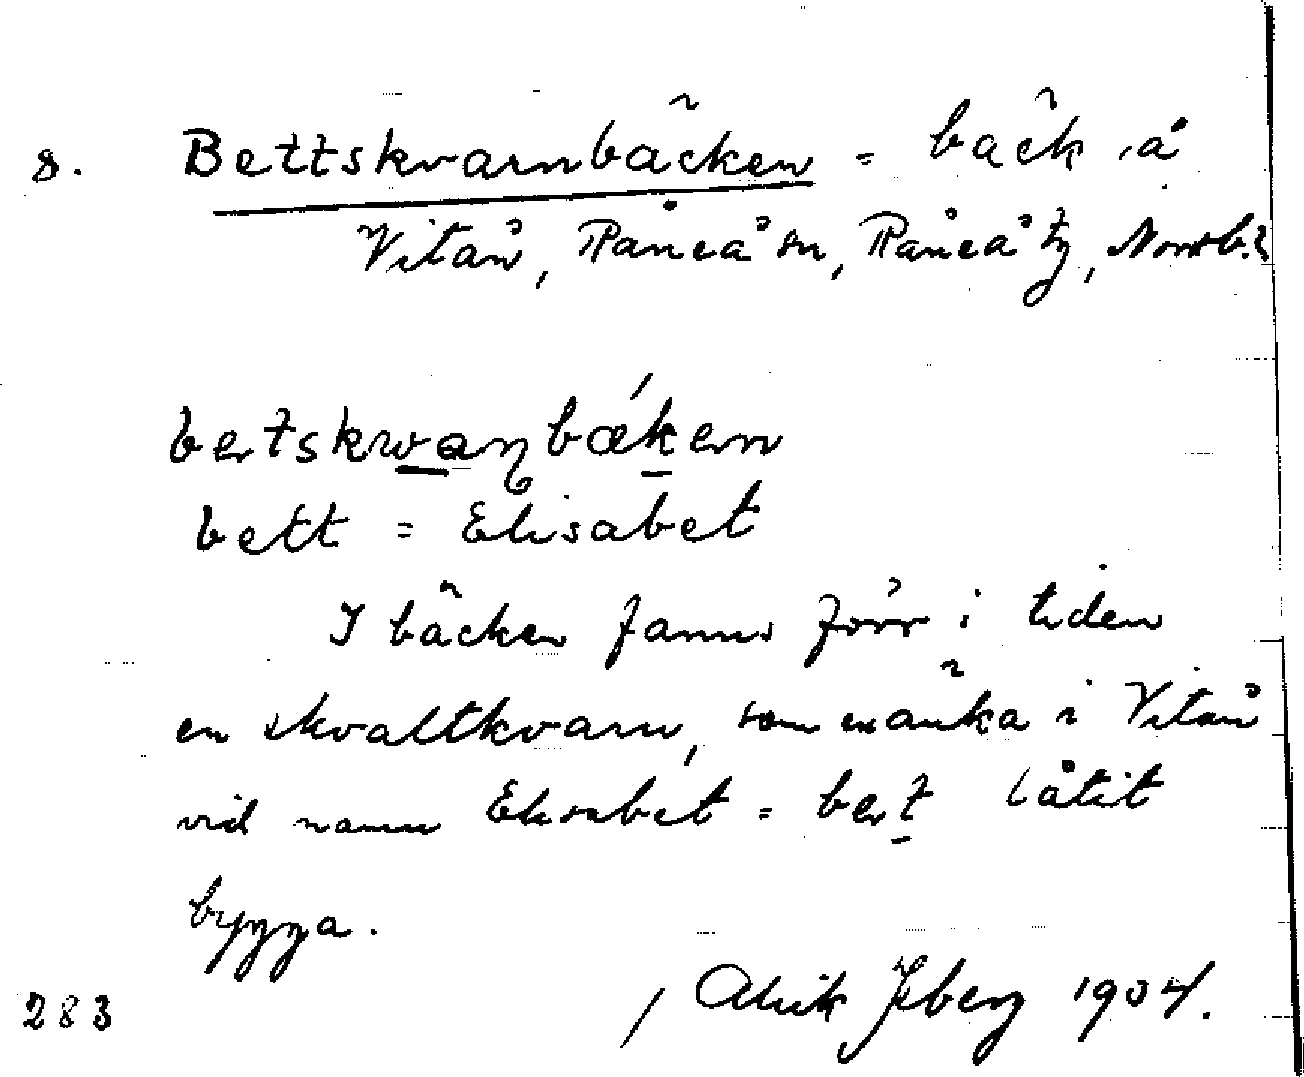 8. Bettskvarnbäcken = bäck å
Vitån, Råneå sn, Råneå tg, Norrb. l
betskwaɳbæken
bett = Elisabet
I bäcken fanns förr i tiden
en skvaltkvarn, som en änka i Vitån
vid namn Elisabet = bet låtit
bygga.
283 1904.